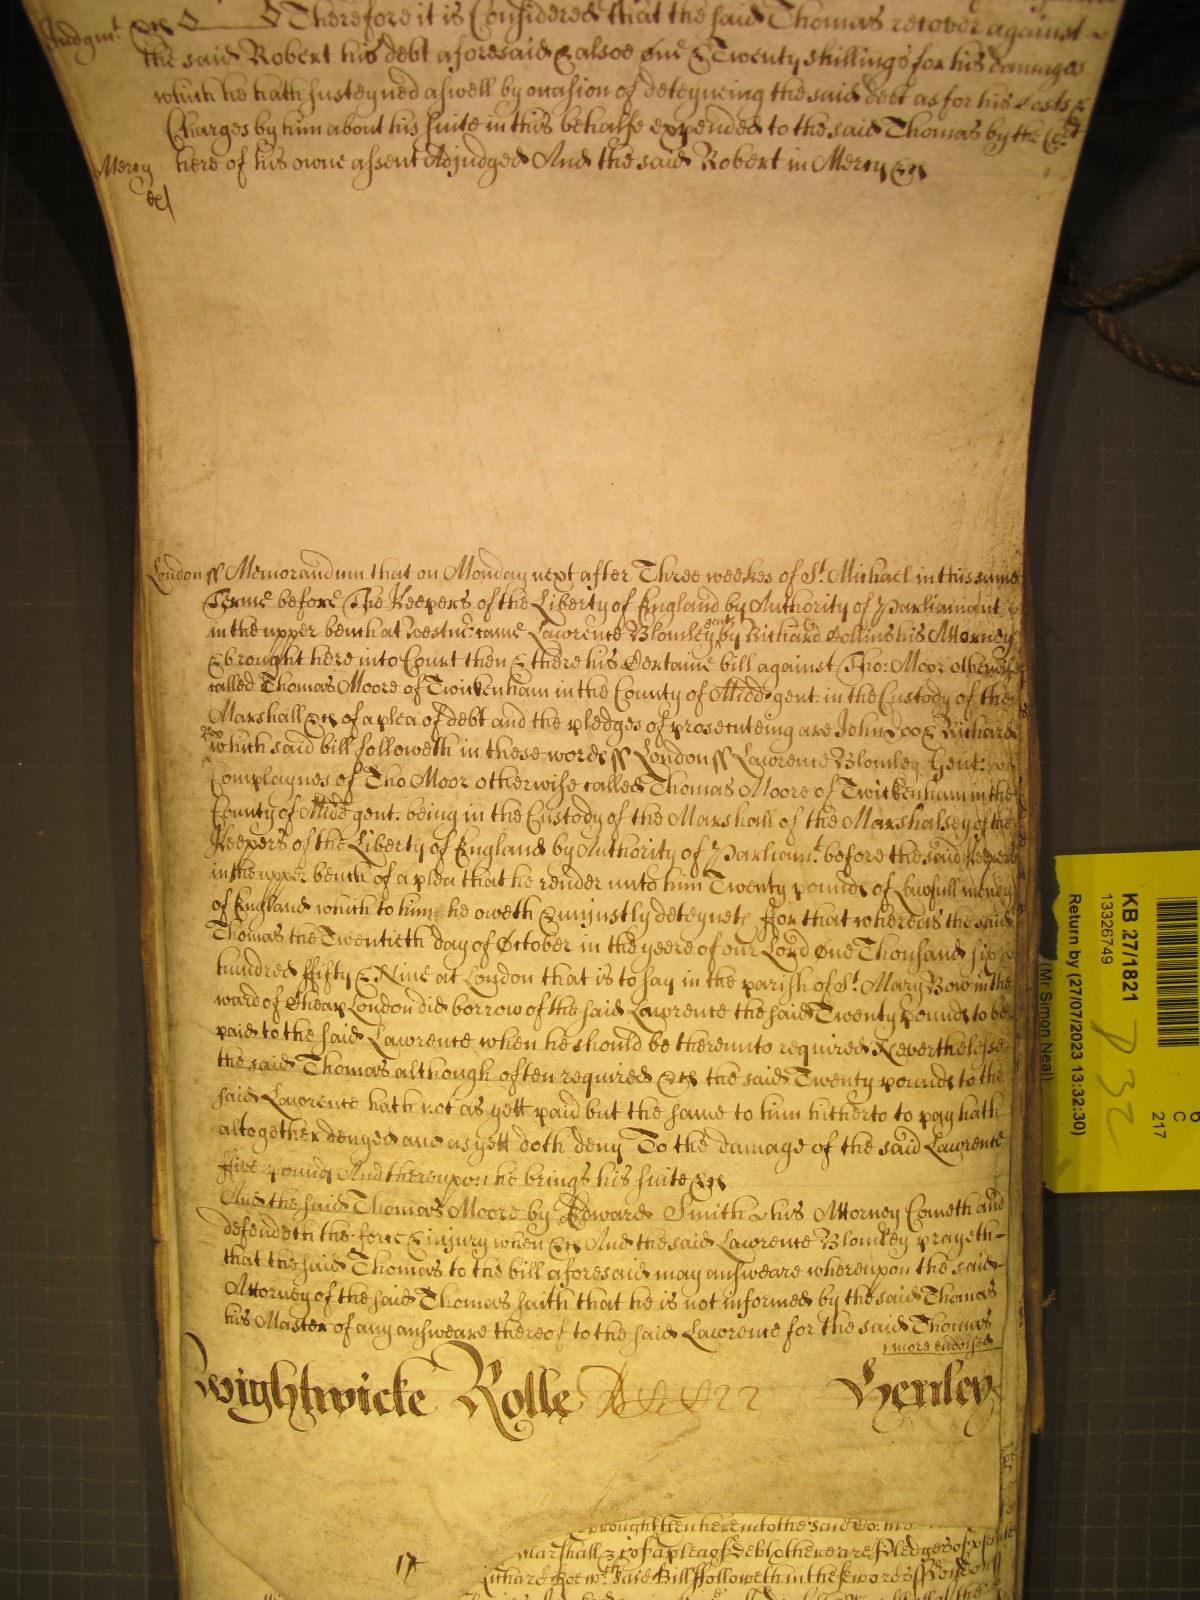 Judgmt. &c Therefore it is Considered that the said Thomas recover against
the said Robert his debt aforesaid & alsoe One & Twenty shillings for his damages
which he hath susteyned aswell by occasion of deteyneing the said debt as for his Costs &
Charges by him about his suite in this behalfe expended to the said Thomas by the Court
Mercy here of his owne assent Adjudged And the said Robert in Mercy &c
London ss Memorandum that on Monday next after Three weekes of St. Michael in this same
Terme before The Keepers of the Liberty of England by Authority of Parliament
in the upper bench at Westmr. came Lawrence Blomley gent by Richard Collins his Attorney
& brought here into Court then & there his Certaine bill against Tho: Moor otherwise
called Thomas Moore of Twickenham in the County of Midd gent. in the Custody of the
Marshall &c of a plea of debt and the pledges of prosecuteing are John Doo & Richard
Roo which said bill followeth in these words ss London ss Lawrence Blomley Gent:
Complaynes of Tho Moor otherwise called Thomas Moore of Twickenham in the
County of Midd gent. being in the Custody of the Marshall of the Marshalsey of the
Keepers of the Liberty of England by Authority of Parliamt. before the said Keepers
in the upper bench of a plea that he render unto him Twenty pounds of Lawfull money
of England which to him he oweth & unjustly deteyneth For that whereas the said
Thomas the Twentieth day of October in the yeere of our Lord One Thousand six
hundred ffifty & Nine at London that is to say in the parish of St. Mary Bow in the
ward of Cheap London did borrow of the said Lawrence the said Twenty pounds to be
paid to the said Lawrence when he should be thereunto required Neverthelesse
the said Thomas although often required &c the said Twenty pounds to the
said Lawrence hath not as yett paid but the same to him hitherto to pay hath
altogether denyed and as yett doth deny To the damage of the said Lawrence
ffive pounds And thereupon he brings his suite &c
And the said Thomas Moore by Edward Smith his Attorney Cometh and
defendeth the force & injury when &c And the said Lawrence Blomley prayeth
that the said Thomas to the bill aforesaid may answeare whereupon the said
Attorney of the said Thomas saith that he is not informed by the said Thomas
his Master of any answeare thereof to the said Lawrence for the said Thomas
more endorsed
Wightwicke Rolle Henley
brought then here into the said Co:
Marshall &c of a plea of Debt & there are Pledges of
Richard Roe wch. said Bill ffolloweth in these words ss London ss
17
KB 27/1821
13326749
Return by (27/07/2023 13:32:30)
(Mr Simon Neal)
C
217